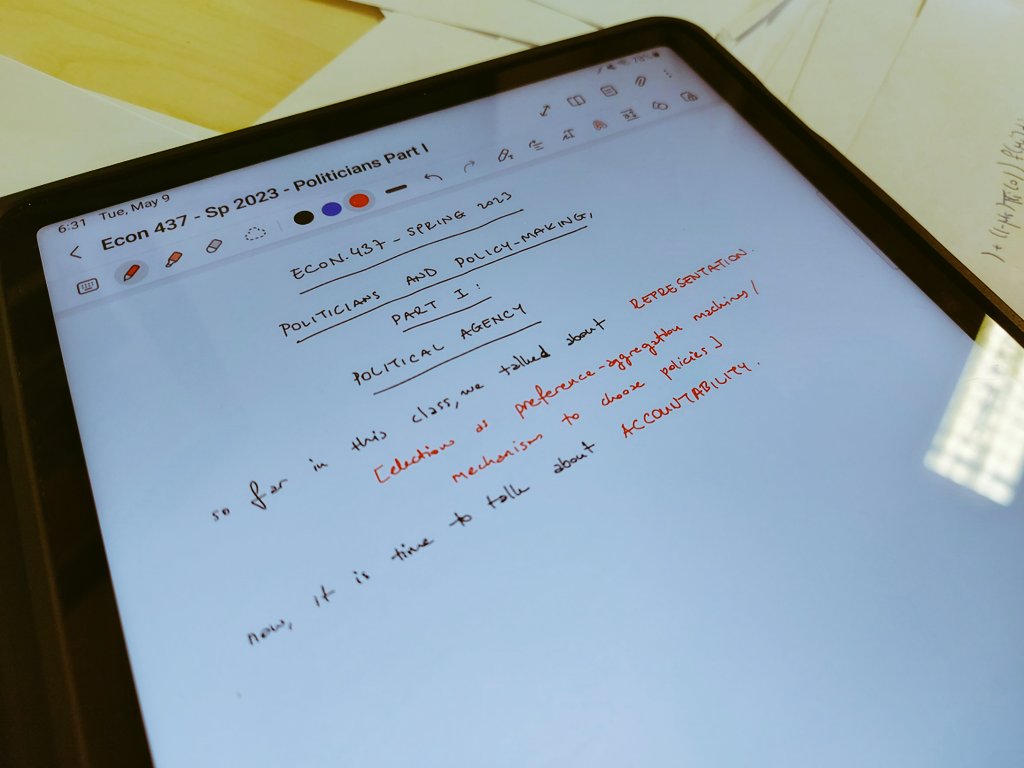 6:31 Tue, May 9
78%
Econ 437 - Sp 2023 - Politicians Part I
ECON.437 - SPRING 2023
POLITICIANS AND POLICY-MAKING,
PART I:
POLITICAL AGENCY
so far in this class, we talked about REPRESENTATION.
[elections as preference-aggregation machines/
mechanisms to choose policies]
now, it is time to talk about ACCOUNTABILITY.